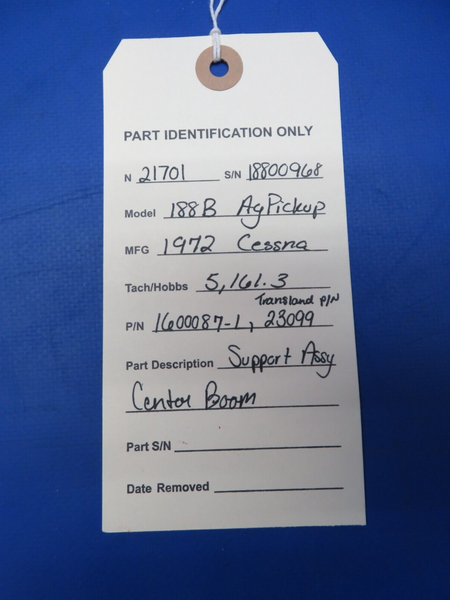 PART IDENTIFICATION ONLY
N 21701 S/N 18800968
Model 188B AgPickup
MFG 1972 Cessna
Tach/Hobbs 5,161.3
Transland P/N
P/N 1600087-1, 23099
Part Description Support Assy
Center Boom
Part S/N
Date Removed